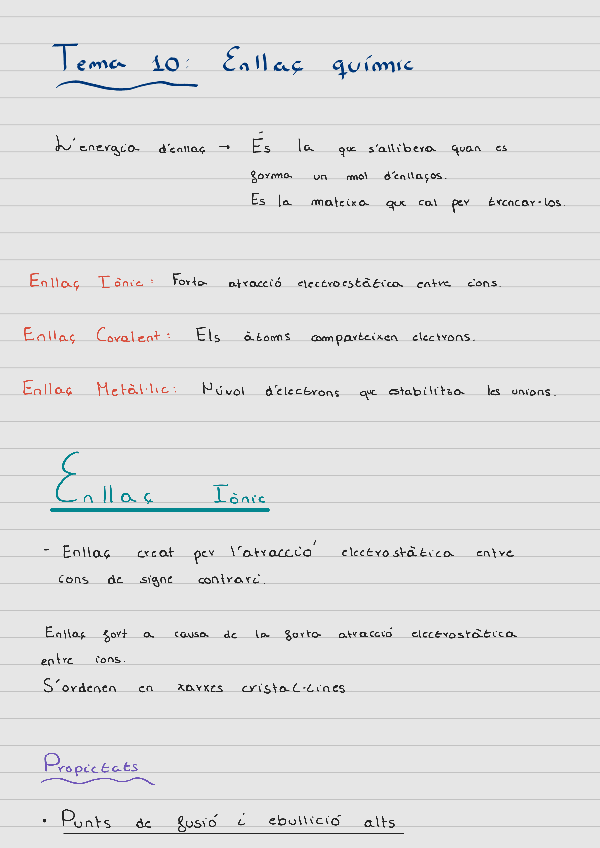 Tema 10: Enllaç químic
L'energia d'enllaç → És la que s'allibera quan es
forma un mol d'enllaços.
És la mateixa que cal per trencar-los.
Enllaç Iònic: Forta atracció electroestàtica entre ions.
Enllaç Covalent: Els àtoms comparteixen electrons.
Enllaç Metàl·lic: Núvol d'electrons que estabilitza les unions.
Enllaç Iònic
- Enllaç creat per l'atracció electrostàtica entre
ions de signe contrari.
Enllaç fort a causa de la forta atracció electrostàtica
entre ions.
S'ordenen en xarxes cristal·lines
Propietats
• Punts de fusió i ebullició alts